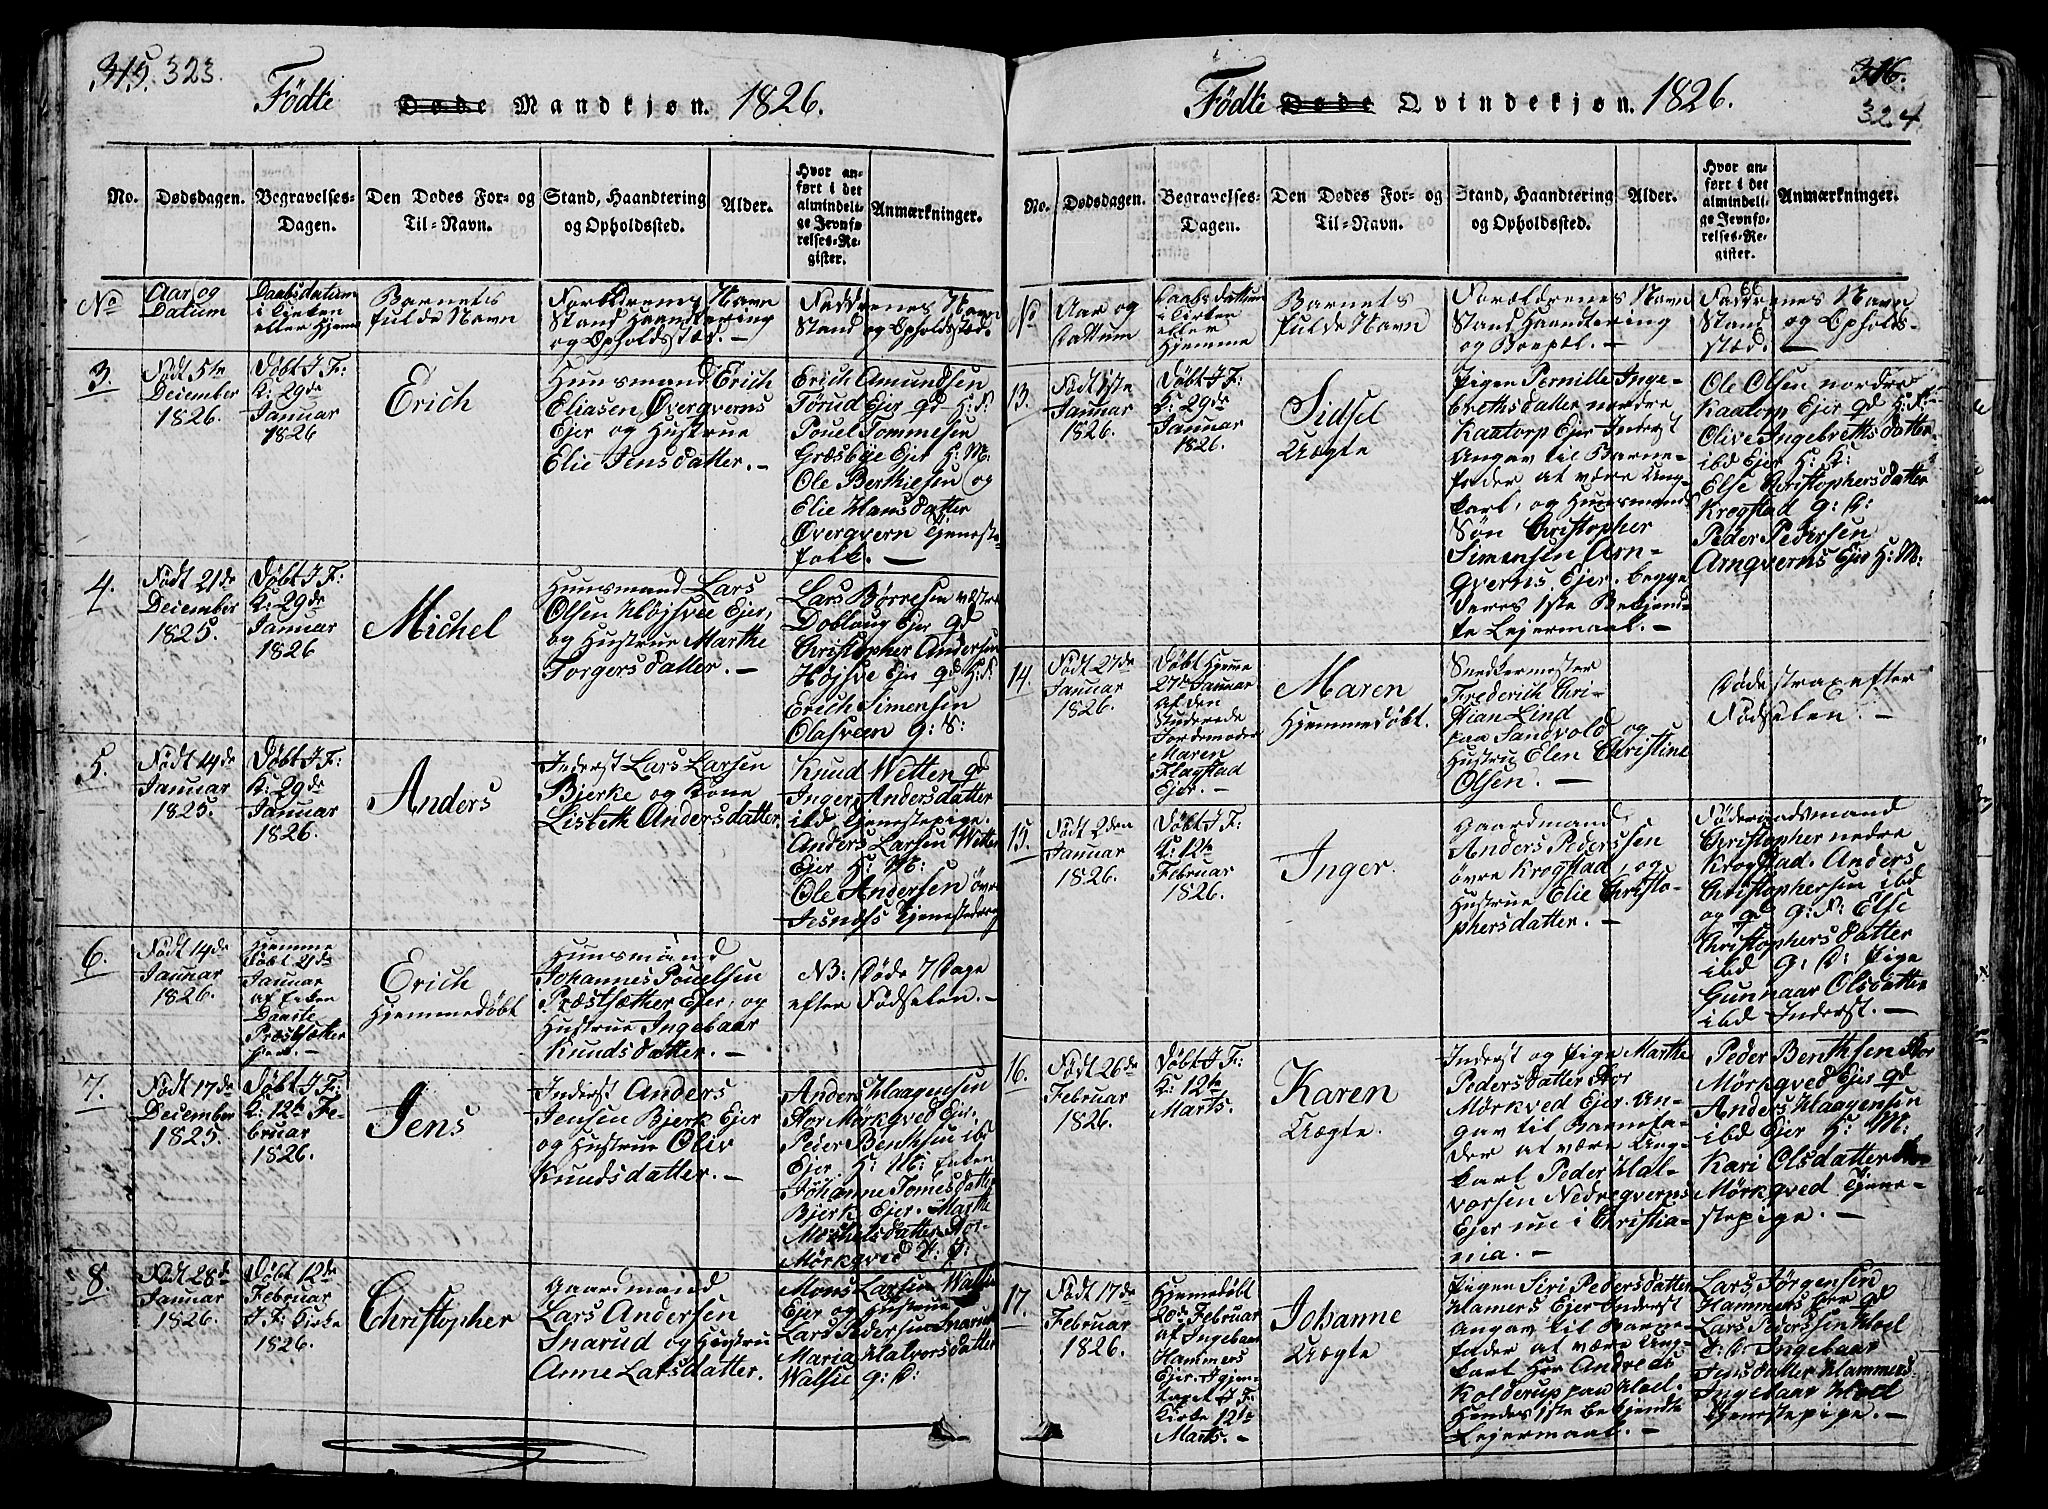 315. 323.
Fødte Døde Mandkjøn. 1826.
No.
Dødsdagen.
Begravelses-
Dagen.
Den Dødes For- og
Til-Navn.
Stand, Haandtering
og Opholdssted.
Alder.
Hvor an-
ført i det
almindeli-
ge Jevnfø-
relses-Re-
gister.
Anmærkninger.
No
Aar og
Datum
Daabsdatum
i Kirken
eller Hjeme
Barnets
fulde Navn
Forældrenes Navn
Stand Haandtering
og Opholdsstæd. -
Faddrenes Navn
Stand og Opholdstæd.
3.
Født 5te
December
1826.
Døbt I F:
K: 29de
Januar
1826
Erich
Huusmand Erich
Eliasen Øvergverns
Ejer og Hustrue
Elie Jensdatter. -
Erich Amundsen
Tørud Ejer gd H: K:
Pouel Tommesen
Græsbye Ejer H: M:
Ole Berthelsen og
Elie Hansdatter
Øvergvern Tjeneste-
folk. -
4.
Født 21de
December
1825.
Døbt I F:
K: 29de
Januar
1826
Michel
Huusmand Lars
Olsen Højsvee Ejer,
og Hustrue Marthe
Torgersdatter. -
Lars Børresen væstre
Dobloug Ejer gd
Christopher Andersen
Højsve Ejer gd H: K:
Erich Simensen
Olasveen g: K:
5.
Født 14de
Januar
1825.
Døbt I F:
K: 29de
Januar
1826.
Anders
Inderst Lars Larsen
Bjerke og Kone
Lisbeth Andersdatter.
Knud Wetten gd
Inger Andersdatter
ibd Tjenstepige.
Anders Larsen Wetten
Ejer H: M:
Ole Andersen øvre
Jesness Tjenestedreng
6.
Født 14de
Januar
1826.
Hjemme
døbt 21de
Januar
af Enken
Præstsæther
Erich
Hjemmedøbt
Huusmand
Johannes Pouelsen
Præstsæther Ejer, og
Hustrue Ingebaar
Knudsdatter. -
NB: Døde 7 Dage
efter Fødselen. -
7.
Født 17de
December
1825.
Døbt I F:
K: 12te Fe-
bruar
1826.
Jens
Inderst Anders
Jensen Bjerk Ejer
og Hustrue Oliv
Knudsdatter. -
Anders Haagensen
Stor Mørkqved Ejer.
Peder Benthsen ibd
Ejer. H: M: Enken
Johanne Tomesdatter
Bjerk Ejer. Marthe
Michelsdatter Stor-
Mørkqved P: P:
8.
Født 28de
Januar
1826.
Døbt 12de
Februar
I F: Kirke
1826.
Christopher
Gaardmand
Lars Andersen
Snarud og Hustru
Anne Larsdatter.
Mons Larsen Walsie
Ejer og Hustrue
Lars Pedersen Snarud
Maria Halvorsdatter
Walsie g: P:
316.
324
Fødte Døde Qvindekjøn. 1826.
No.
Dødsdagen.
Begravelses-
Dagen.
Den Dødes For- og
Til-Navn.
Stand, Haandtering
og Opholdssted.
Alder.
Hvor an-
ført i det
almindeli-
ge Jevnfø-
relses-Re-
gister.
Anmærkninger.
No
Aar og
Dattum
Daabs dattum
i Kirken
eller
Hjemme
Barnets
fulde Navn
Forældrenes Navn
Stand Haandtering
og Boepæl. -
Faddrenes Navn
Stand og Opholds-
stæd. -
13.
Født 1ste
Januar
1826.
Døbt I F:
K: 29de
Januar
1826.
Sidsel
Uægte
Pigen Pernille Inge-
brethsdatter nordre
Kaatorp Ejer Inderst
Angav til Barne-
fader at være Ung-
karl, og Huusmands
Søn Christopher
Simensen Arn-
qverns Ejer. begge
deres 1ste Bekjend-
te Lejermaal. -
Ole Olsen nordre
Kaatorp Ejer gd H: K:
Olive Ingebrethsdatter
ibd Ejer H: K:
Else Christophersdatter
Krogstad g: P:
Peder Pedersen
Arnqverns Ejer H: M:
14.
Født 27de
Januar
1826.
Døbt Hjeme
27de Januar
af den
Studerede
Jordemoder
Maren
Flagstad
Ejer. -
Maren
Hjemmedøbt.
Snedkermester
Frederich Chri-
stian Lind
paa Sandvold og
Hustru Elen Christine
Olsen. -
Døde strax efter
Fødselen. -
15.
Født 2den
Januar
1826.
Døbt I F:
K: 12te
Februar
1826.
Inger.
Gaardmand
Anders Pederssen
øvre Krogstad, og
Hustrue Elie Christo-
phersdatter. -
Føderaadsmand
Christopher nedre
Krogstad. Anders
Christophersen ibd
og gd g: K: Else
Christophersdatter
ibd g: P: Pige
Gunnaar Olsdatter
ibd Inderst. -
16.
Født 26de
Februar
1826.
Døbt I F:
K: 12te
Marts.
Karen
Uægte.
Inderst og Pige Marthe
Pedersdatter Stor
Mørkved Ejer. An-
gav til Barnefa-
der at være Ung-
karl Peder Hal-
vorsen Nedreqverns
Ejer nu i Christia-
nia. -
Peder Benthsen Stor
Mørkqved Ejer gd
Anders Haagensen
ibd Ejer H: M:
Kari Olsdatter
Mørkqved Tjene-
stepige. -
17.
Født 17de
Februar
1826.
Hjemmedøbt
20de Februar
af Ingebaar
Hammers
Ejer. Igjen-
taget I F:
Kirke 12te
Marts. -
Johanne
Uægte
Pigen Siri Pedersdatter
Hamers Ejer Inderst
Angav til Barne-
fader at være Ung-
karl Her Andreas
Kolderup paa Hoel.
Hendes 1ste bekjendte
Lejermaal. -
Lars Jørgensen
Hammers Ejer gd
Lars Pederssen Hoel
Ingebaar
Jensdatter Hammers
Ingebaar Hoel
Tjenstepige. -